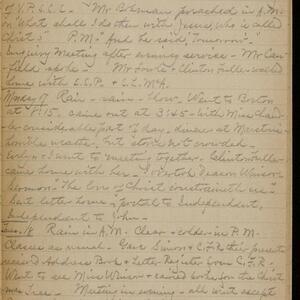 of Y.P.S.C.E. - Mr Bowman preached in A.M.
on "What shall I do then with Jesus, who is called
Christ?" P.M. "And he said, Tomorrow".
Inquiry Meeting after evening service - Mr Can-
field spoke - Mr Fowle & Clinton Fuller walked
home with
Monday 17 Rain - rain - blow. Went to Boston
at 8.15. came out at 3.45 - with Miss
by considerable part of day, dined at
horrible weather, but stores not crowded.
& I went to meeting together. Clinton Fuller
came home with her. Deacon
Sermon. "The love of Christ constraineth us".
Sent letter home - postal to Independent,
Independent to John -
Tues. 18 Rain in A.M. Clear - colder in P.M.
Classes as usual. Gave & C.F.R. their presents
Address Book & Letter Register from C.F.R.
Went to see Miss & carried for the Christ
mas Tree. Meeting in evening - all went except